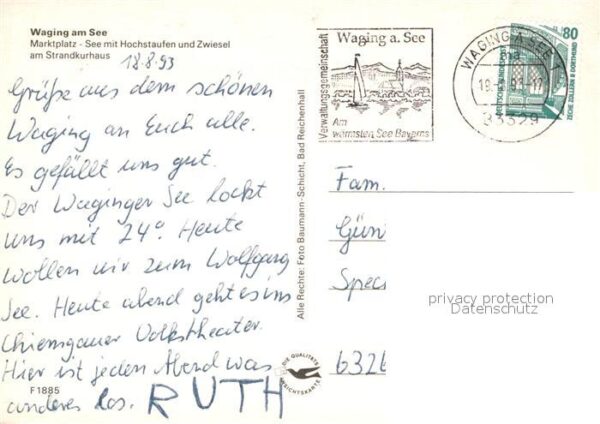 Waging am See
Marktplatz - See mit Hochstaufen und Zwiesel
am Strandkurhaus
18.8.93
Grüße aus dem schönen
Waging an Euch alle.
Es gefällt uns gut.
Der Waginger See lockt
uns mit 24°. Heute
wollen wir zum Wolfgang
See. Heute abend geht es ins
Chiemgauer Volkstheater.
Hier ist jeden Abend was
anderes los. RUTH
F 1885
Alle Rechte: Foto Baumann-Schicht, Bad Reichenhall
DIE QUALITÄTS
Verwaltungsgemeinschaft
Waging a. See
Am
wärmsten See Bayerns
WAGING A. SEE
83329
80
DEUTSCHE BUNDESPOST
ZECHE ZOLLERN II DORTMUND
Fam.
Gün
Spec
6326
privacy protection
Datenschutz